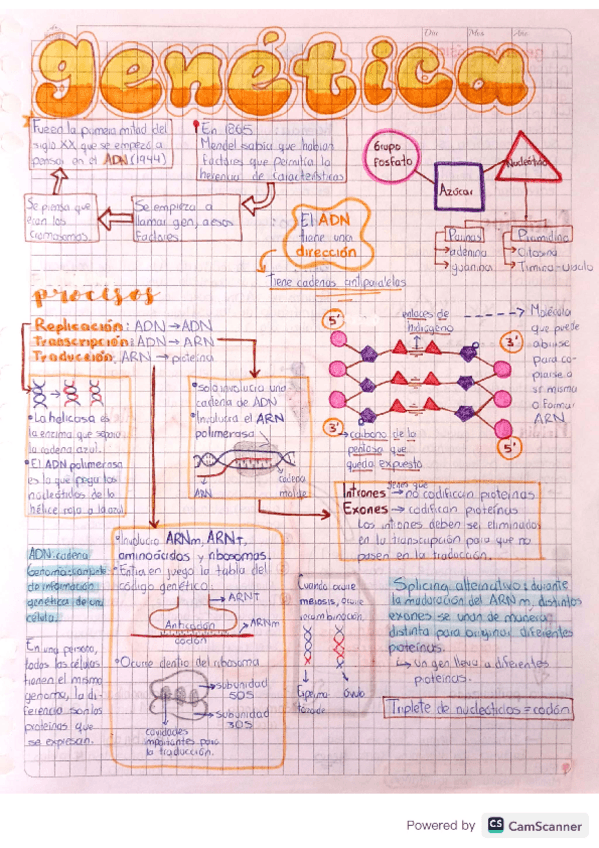 genética
Día Mes Año
Fue en la primera mitad del
siglo XX que se empezó a
pensar en el ADN (1944)
En 1865
Mendel sabía que habían
factores que permitía la
herencia de características
Se piensa que
eran los
cromosomas.
Se empieza a
llamar gen, a esos
factores.
Grupo
fosfato
Azúcar
Nucleótido
Purinas
adenina
guanina
Piramidina
Citosina
Timina-uracilo
El ADN
tiene una
dirección
Tiene cadenas antiparalelas
procesos
Replicación: ADN → ADN
Transcripción: ADN → ARN
Traducción: ARN → proteína
La helicasa es
la enzima que separa
la cadena azul.
El ADN polimerasa
es la que pega los
nucleótidos de la
hélice roja a la azul.
Solo involucra una
cadena de ADN
Involucra el ARN
polimerasa
ARN
cadena
molde
enlaces de
hidrógeno
5'
3'
3'
5'
Molécula
que puede
abrirse
para co-
piarse a
sí misma
o formar
ARN.
carbono de la
pentosa que
queda expuesto
Intrones genes que → no codifican proteínas
Exones → codifican proteínas
Los intrones deben ser eliminados
en la transcripción para que no
pasen en la traducción.
Involucra ARNm, ARNT,
aminoácidos y ribosomas.
Entra en juego la tabla del
código genético.
ARNT
ARNm
Anticodón
codón
Ocurre dentro del ribosoma
subunidad
50S
subunidad
30S
cavidades
importantes para
la traducción.
ADN: cadena
Genoma: conjunto
de información
genética de una
célula.
En una persona,
todas las células
tienen el mismo
genoma, la di-
ferencia son las
proteínas que
se expresan.
Cuando ocurre
meiosis, ocurre
recombinación.
Esperma
tozoide
óvulo
Splicing alternativo: durante
la maduración del ARNm, distintos
exones se unen de manera
distinta para originar diferentes
proteínas.
↳ un gen lleva a diferentes
proteínas.
Triplete de nucleótidos = codón
Powered by CS CamScanner